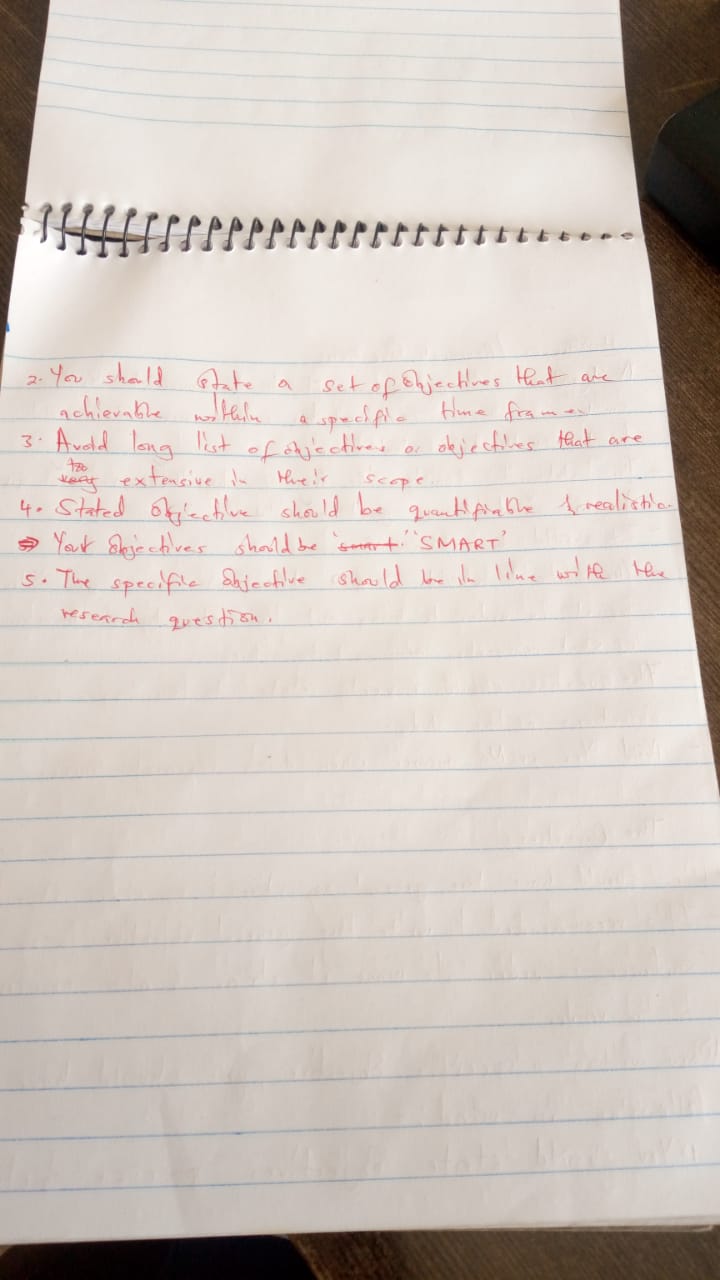 2. You should state a set of objectives that are
achievable within a specific time frame.
3. Avoid long list of objectives or objectives that are
too
very extensive in their scope
4. Stated objective should be quantifiable & realistic.
⇒ Your objectives should be 'smart.' 'SMART'
5. The specific objective should be in line with the
research question.